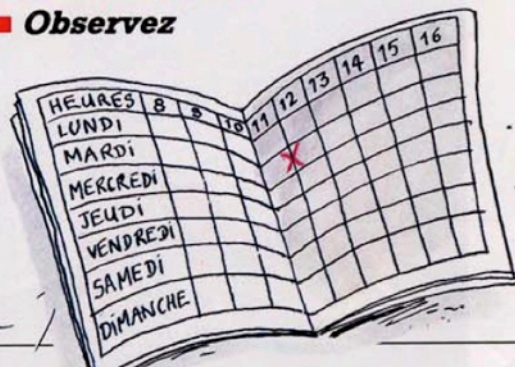 Observez
HEURES 8 9 10 11 12 13 14 15 16
LUNDI
MARDI
MERCREDI
JEUDI
VENDREDI
SAMEDI
DIMANCHE
X